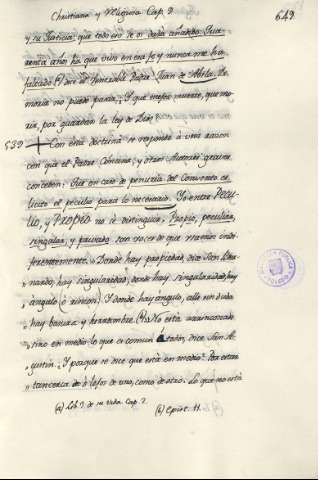 Christiana y Religiosa Cap. 9
649.
y su Justicia, que todo eso se os dará añadido. Quarenta años ha que vivo en esta fe y nunca me ha
faltado (a) dice el Venerable Padre Juan de
no puede parar. ¿Y que mejor muerte, que morir
por guardar la ley de Dios?
539 Con esta doctrina se responde á una razon
con que el Padre Concina, y otros Autores graves
conceden: que en caso de penuria del Convento es
licito el peculio para lo necesario. Yo entre Peculio,
y Propio no se distinguir. Propio, peculiar,
singular, y privado son voces de que usamos indiferentemente.
Donde hay propiedad dice San Bernardo,
hay singularidad; donde hay singularidad, hay
angulo (ó rincon). Y donde hay angulo, alli sin duda
hay basura y herrumbre. (b) No está
sino en medio lo que es comun á todos, dice San Agustin.
¿Y porque se dice que está en medio? Por estar
tan cerca de ó lejos de uno, como de otro. Lo que no está
(a) Lib. 7. de su Vida Cap. 2.
(b) Epist. 11.